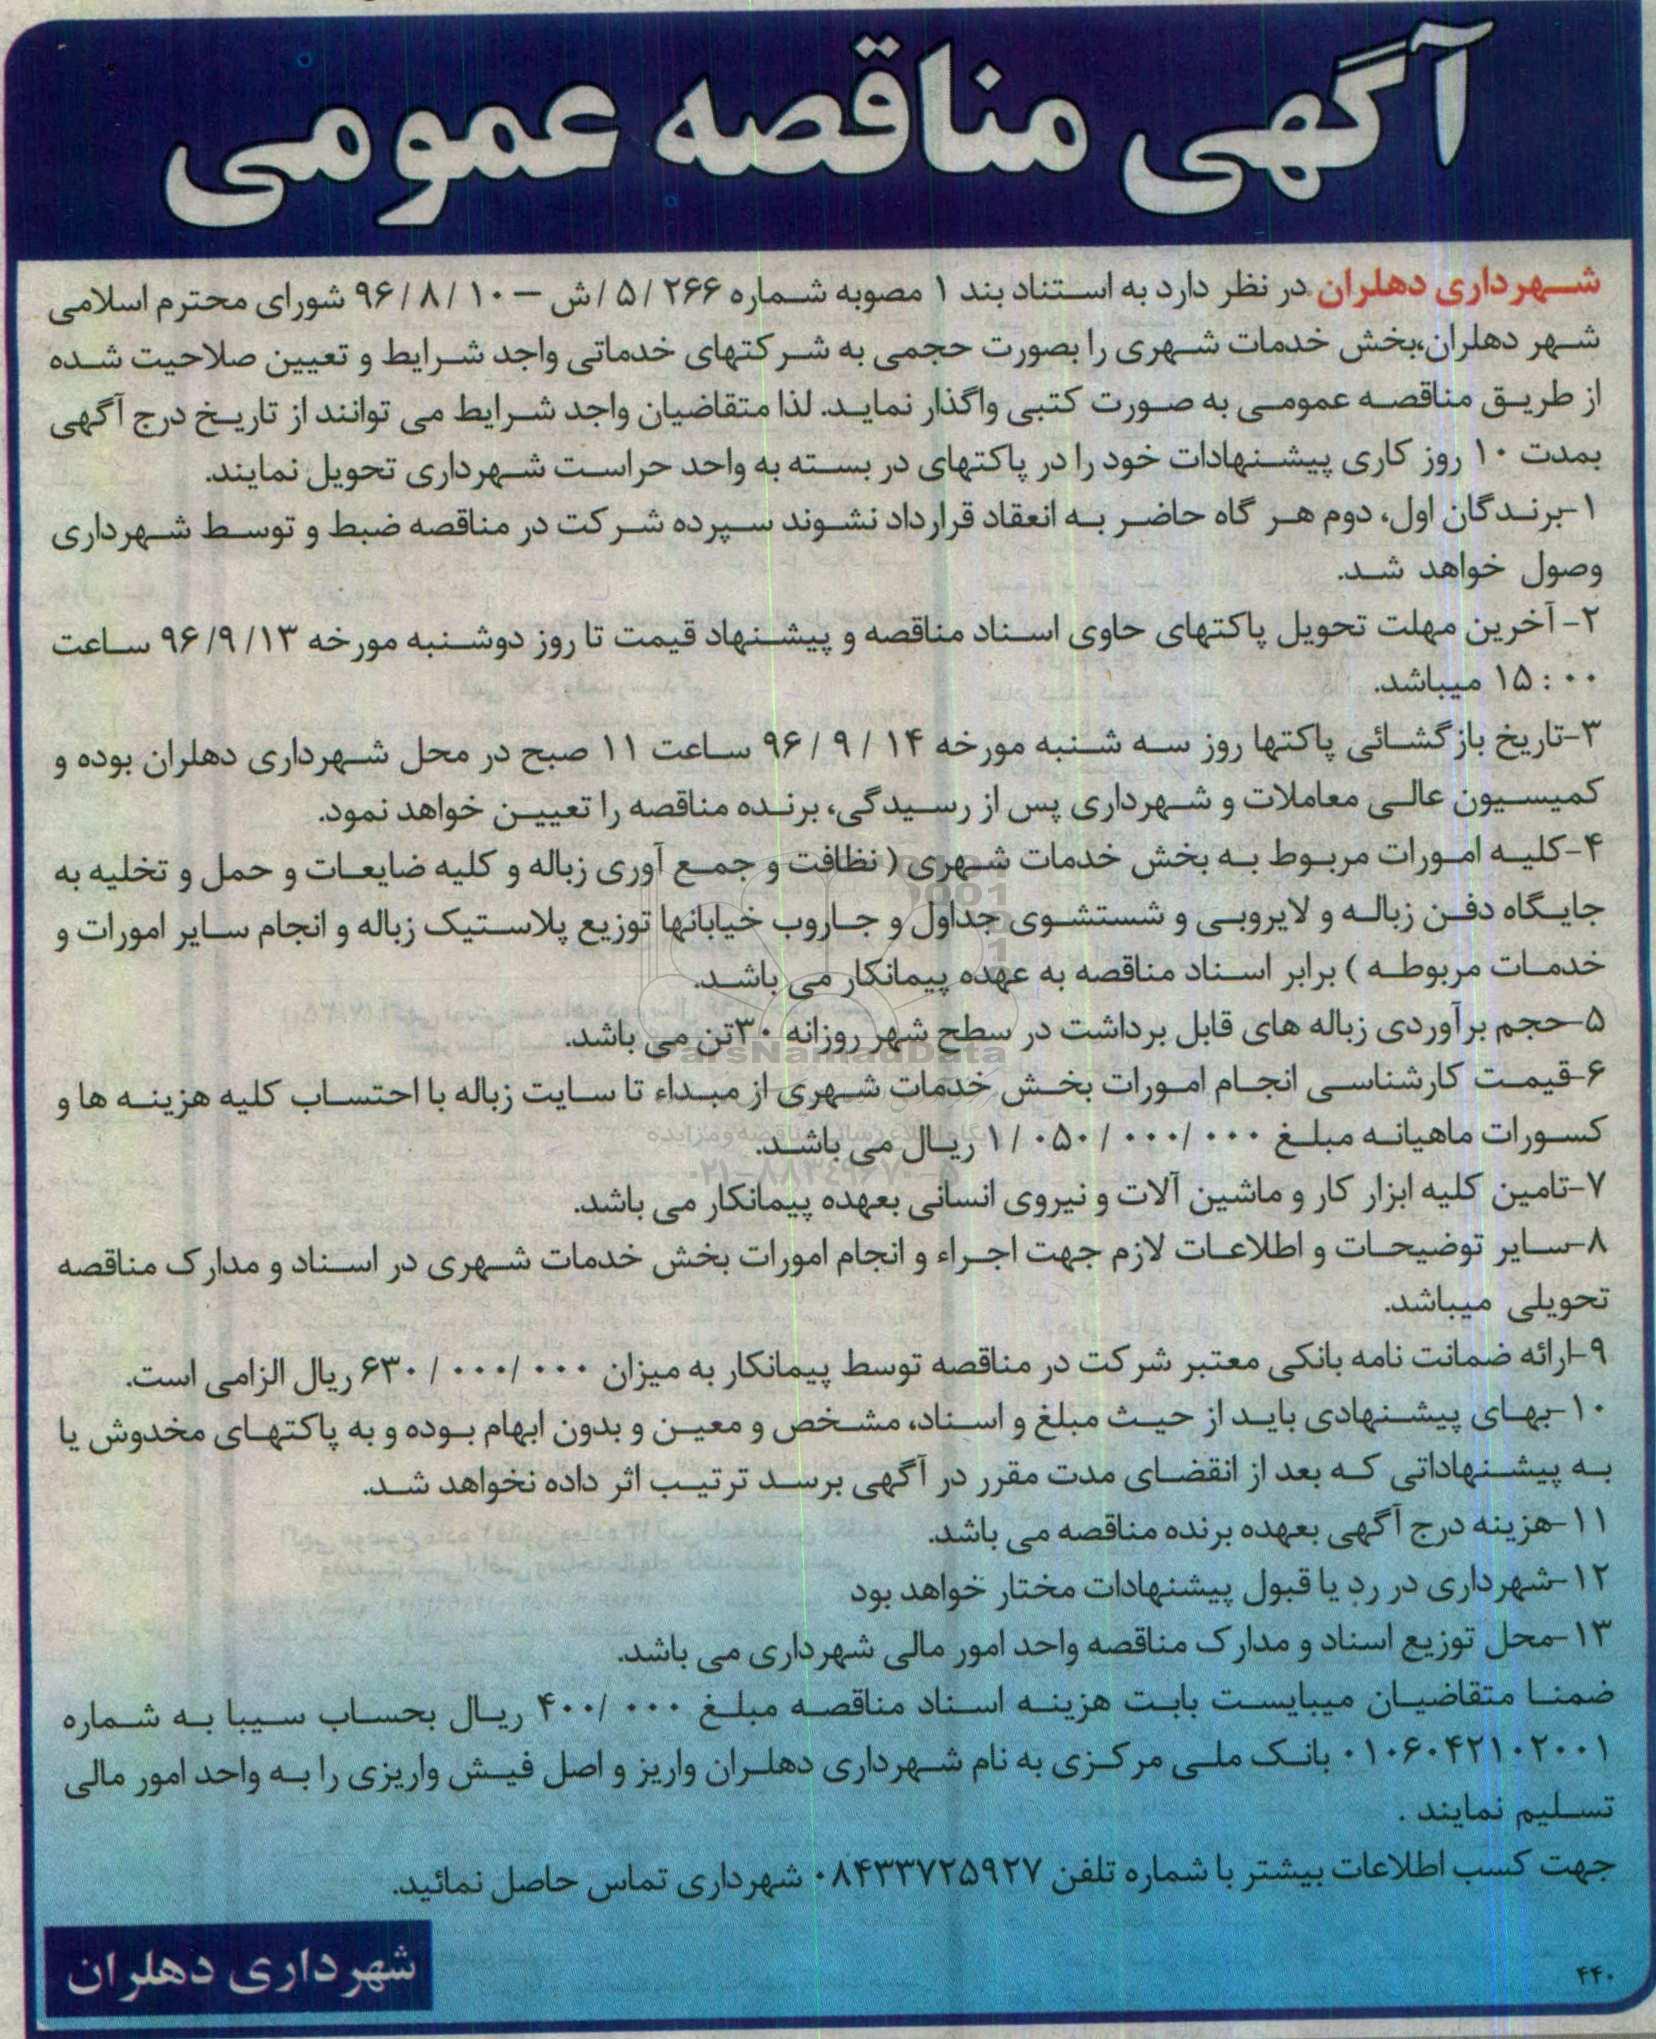 آگهی مناقصه عمومی
شهرداری دهلران در نظر دارد به استناد بند ۱ مصوبه شماره ۲۶۶ / ۵ /ش – ۱۰ / ۸ / ۹۶ شورای محترم اسلامی
شهر دهلران،بخش خدمات شهری را بصورت حجمی به شرکتهای خدماتی واجد شرایط و تعیین صلاحیت شده
از طریق مناقصه عمومی به صورت کتبی واگذار نماید. لذا متقاضیان واجد شرایط می توانند از تاریخ درج آگهی
بمدت ۱۰ روز کاری پیشنهادات خود را در پاکتهای در بسته به واحد حراست شهرداری تحویل نمایند.
۱-برندگان اول، دوم هر گاه حاضر به انعقاد قرارداد نشوند سپرده شرکت در مناقصه ضبط و توسط شهرداری
وصول خواهد شد.
۲- آخرین مهلت تحویل پاکتهای حاوی اسناد مناقصه و پیشنهاد قیمت تا روز دوشنبه مورخه ۱۳/ ۹/ ۹۶ ساعت
۰۰ : ۱۵ میباشد.
۳-تاریخ بازگشائی پاکتها روز سه شنبه مورخه ۱۴ / ۹ / ۹۶ ساعت ۱۱ صبح در محل شهرداری دهلران بوده و
کمیسیون عالی معاملات و شهرداری پس از رسیدگی، برنده مناقصه را تعیین خواهد نمود.
۴-کلیه امورات مربوط به بخش خدمات شهری ( نظافت و جمع آوری زباله و کلیه ضایعات و حمل و تخلیه به
جایگاه دفن زباله و لایروبی و شستشوی جداول و جاروب خیابانها توزیع پلاستیک زباله و انجام سایر امورات و
خدمات مربوطه ) برابر اسناد مناقصه به عهده پیمانکار می باشد.
۵-حجم برآوردی زباله های قابل برداشت در سطح شهر روزانه ۳۰تن می باشد.
ParsNamadData
۶-قیمت کارشناسی انجام امورات بخش خدمات شهری از مبداء تا سایت زباله با احتساب کلیه هزینه ها و
کسورات ماهیانه مبلغ ۰۰۰ /۰۰۰ / ۰۵۰ /۱ ریال می باشد.
۷-تامین کلیه ابزار کار و ماشین آلات و نیروی انسانی بعهده پیمانکار می باشد.
۸-سایر توضیحات و اطلاعات لازم جهت اجراء و انجام امورات بخش خدمات شهری در اسناد و مدارک مناقصه
تحویلی میباشد.
۹-ارائه ضمانت نامه بانکی معتبر شرکت در مناقصه توسط پیمانکار به میزان ۰۰۰ /۰۰۰ / ۶۳۰ ریال الزامی است.
۱۰-بهای پیشنهادی باید از حیث مبلغ و اسناد، مشخص و معین و بدون ابهام بوده و به پاکتهای مخدوش یا
به پیشنهاداتی که بعد از انقضای مدت مقرر در آگهی برسد ترتیب اثر داده نخواهد شد.
۱۱-هزینه درج آگهی بعهده برنده مناقصه می باشد.
۱۲-شهرداری در رد یا قبول پیشنهادات مختار خواهد بود
۱۳-محل توزیع اسناد و مدارک مناقصه واحد امور مالی شهرداری می باشد.
ضمنا متقاضیان میبایست بابت هزینه اسناد مناقصه مبلغ ۰۰۰ /۴۰۰ ریال بحساب سیبا به شماره
۰۱۰۶۰۴۲۱۰۲۰۰۱ بانک ملی مرکزی به نام شهرداری دهلران واریز و اصل فیش واریزی را به واحد امور مالی
تسلیم نمایند .
جهت کسب اطلاعات بیشتر با شماره تلفن ۰۸۴۳۳۷۲۵۹۲۷ شهرداری تماس حاصل نمائید.
شهرداری دهلران
۴۴۰